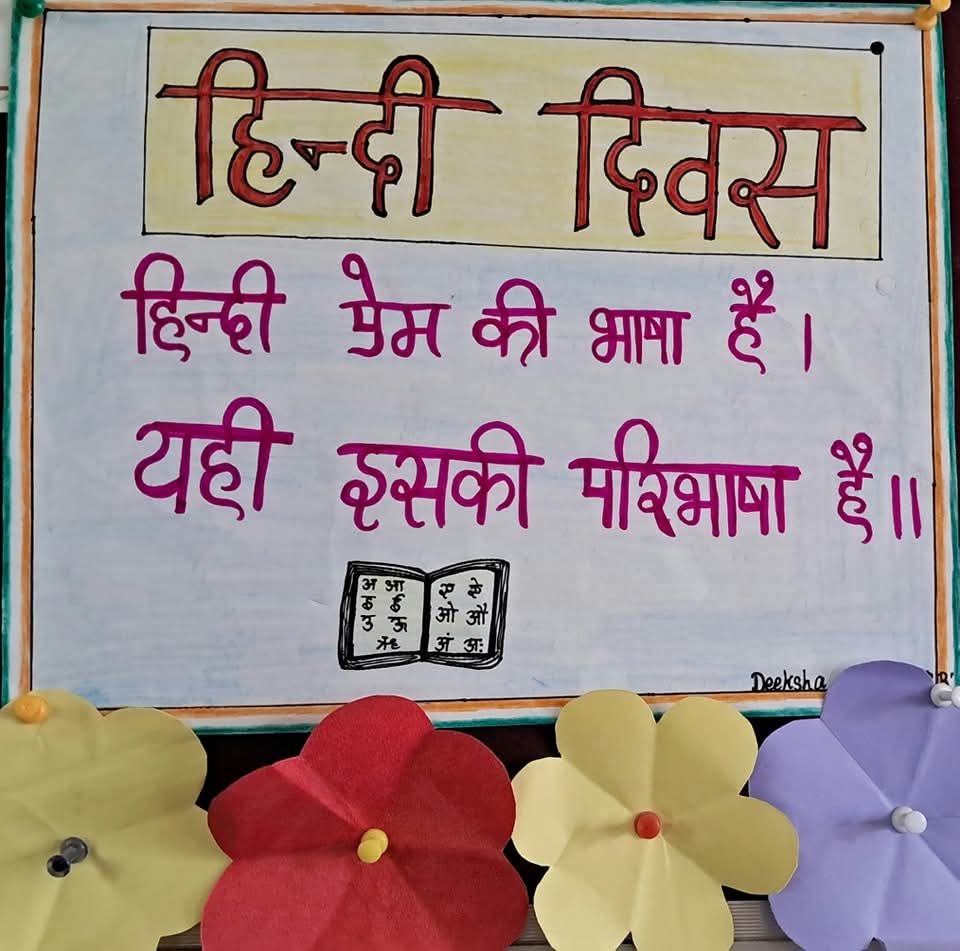 हिन्दी दिवस
हिन्दी प्रेम की भाषा है।
यही इसकी परिभाषा है॥
अ आ ए ऐ
इ ई ओ औ
उ ऊ अं अः
ऋ
Deeksha